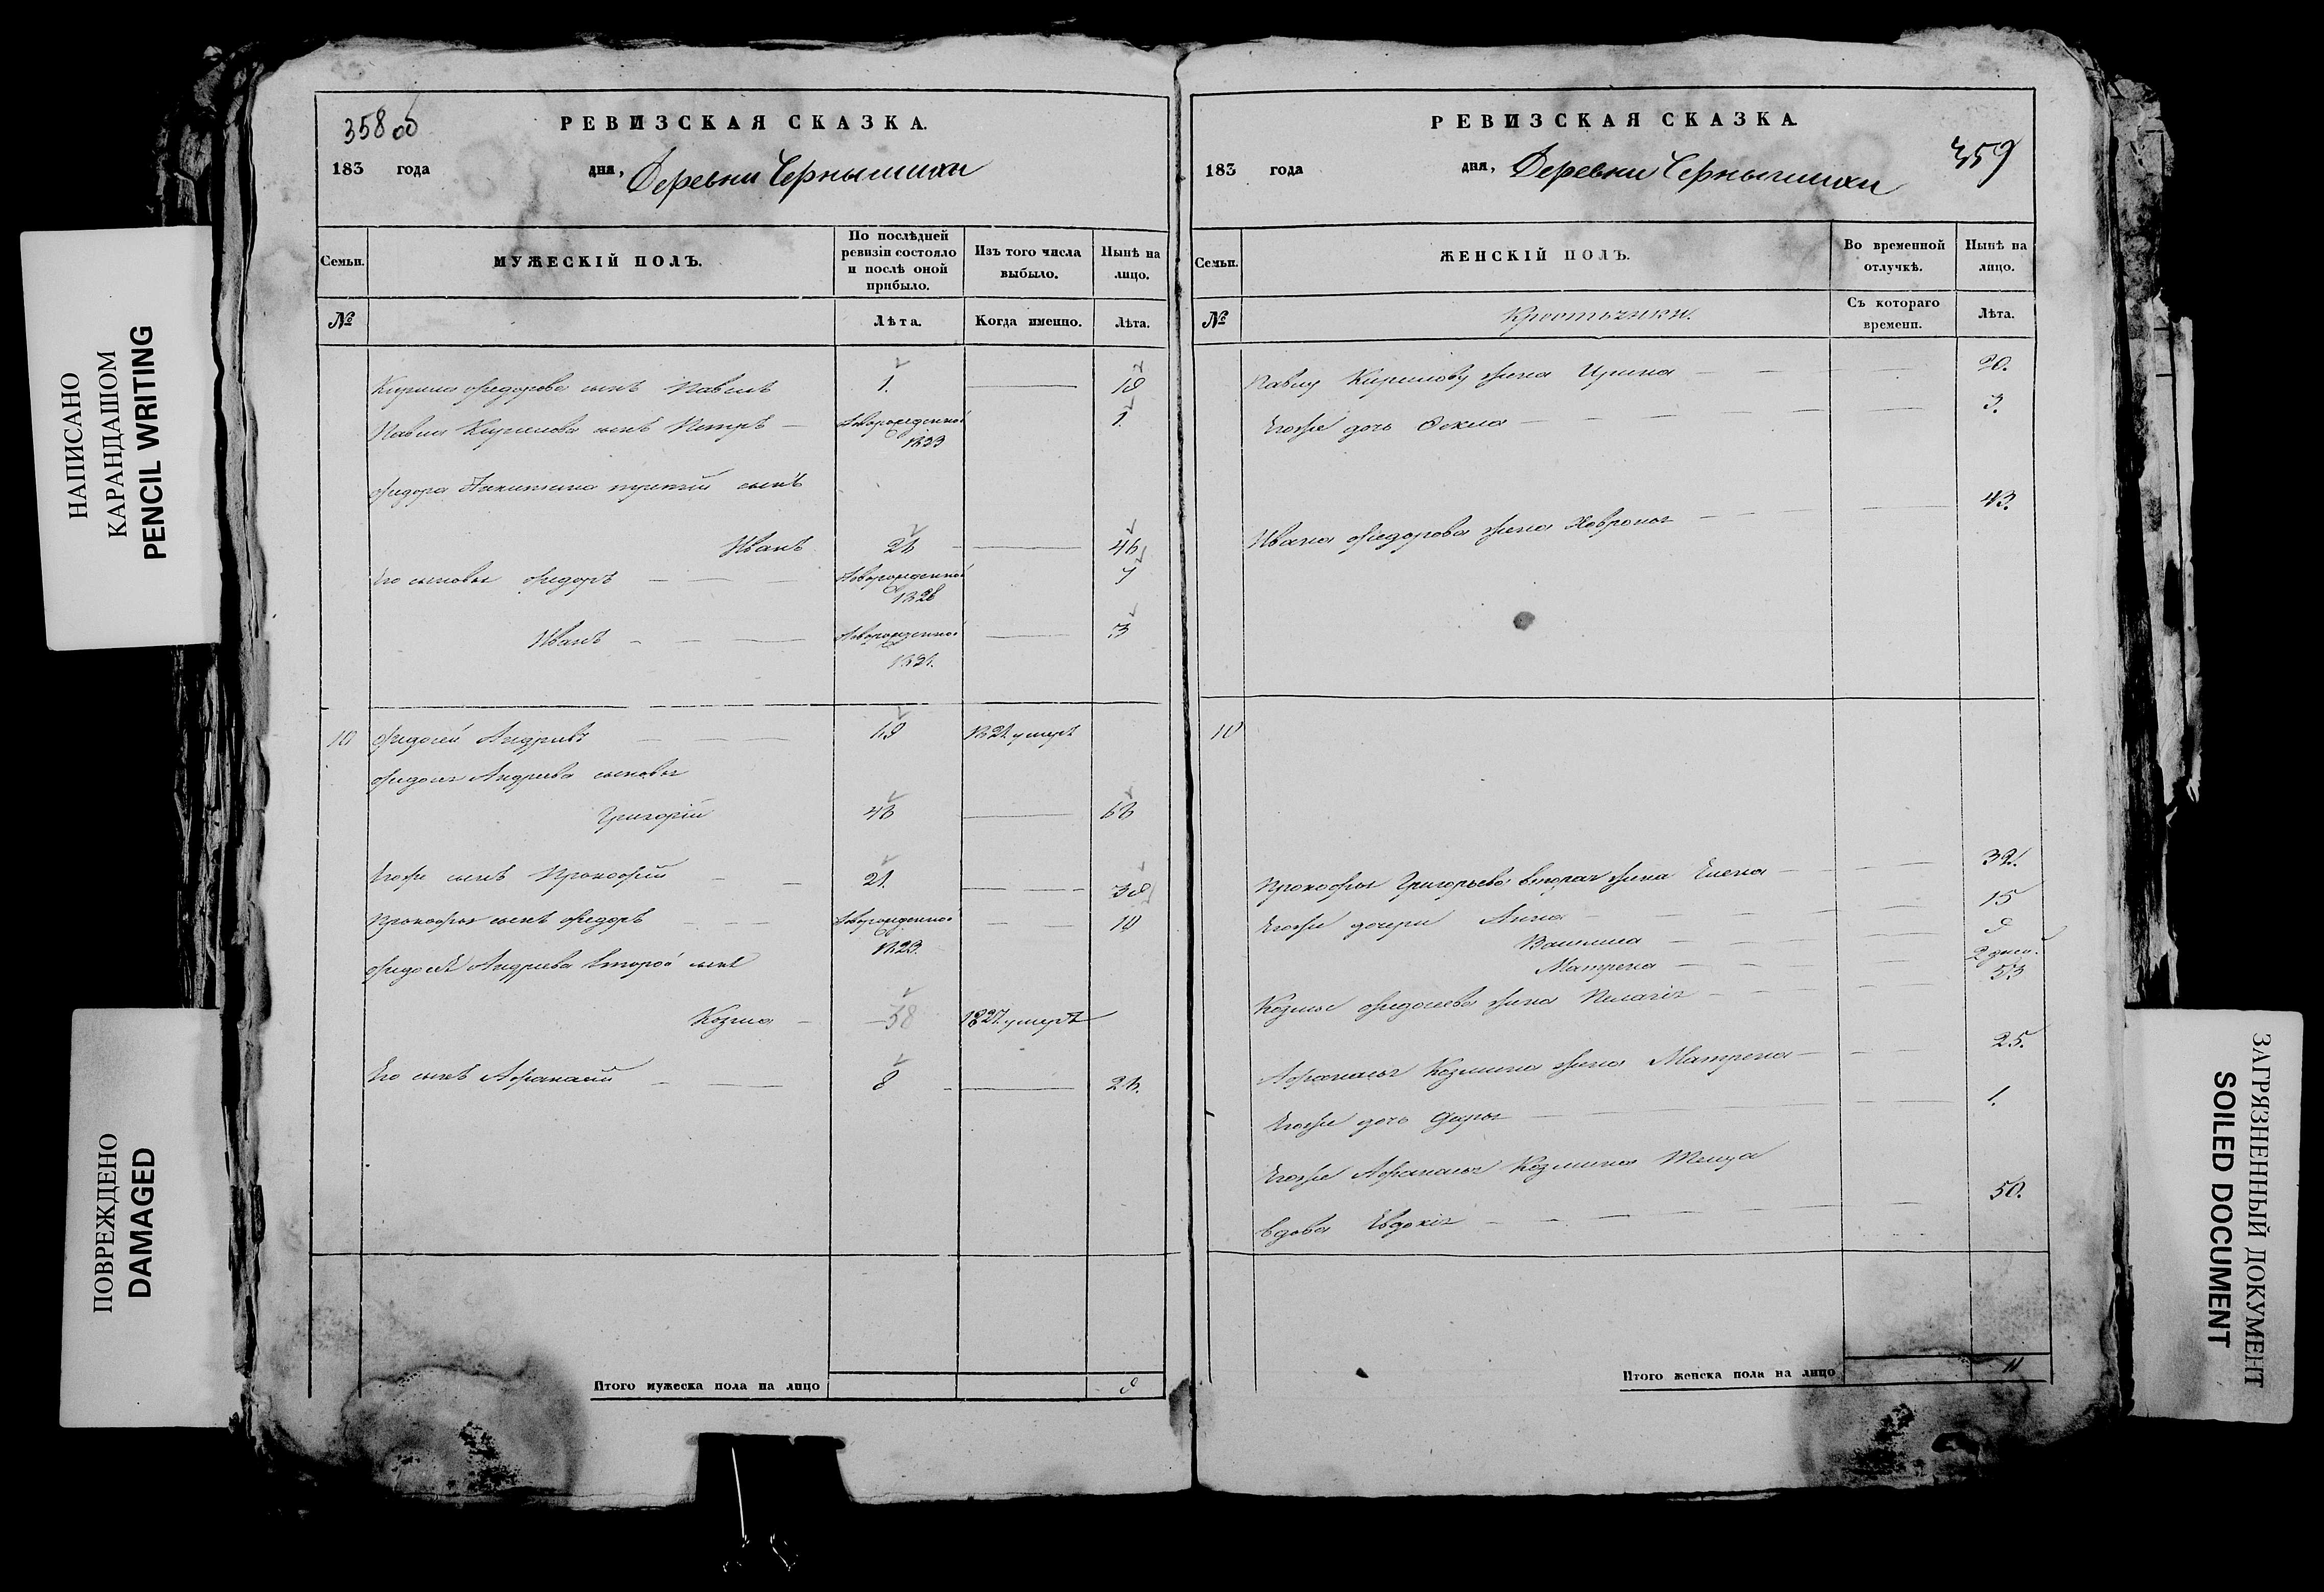 НАПИСАНО
КАРАНДАШОМ
PENCIL WRITING
ПОВРЕЖДЕНО
DAMAGED
358 об
РЕВИЗСКАЯ СКАЗКА.
183 года дня, Деревни Чернышихи
Семьи.
МУЖЕСКІЙ ПОЛЪ.
По послѣдней ревизіи состояло и послѣ оной прибыло.
Изъ того числа выбыло.
Нынѣ на лицо.
№
Лѣта.
Когда именно.
Лѣта.
Кирила Федорова сынъ Павелъ 1. 19
Павла Кирилова сынъ Петръ 1.
Федора третій сынъ
Иванъ 26 46
Его сыновья Федоръ 7
Иванъ 3
10 Федосей Андреевъ умеръ
Федосея Андреева сыновья
Григорій 46
Егоже сынъ Прокофій 21.
Прокофья сынъ Федоръ 10
Федосея Андреева второй сынъ
Козма 58 1827 умеръ
Его сынъ Афанасій 8 26.
Итого мужеска пола на лицо 9
РЕВИЗСКАЯ СКАЗКА.
359
183 года дня, Деревни Чернышихи
Семьи.
ЖЕНСКІЙ ПОЛЪ.
Во временной отлучкѣ.
Нынѣ на лицо.
№
Крестьянки.
Съ котораго времени.
Лѣта.
Павлу Кирилову жена Ирина 20.
Егоже дочь Фекла 3.
Ивана Федорова жена Хавронья 43.
10
Прокофья Григорьева вторая жена Елена 32.
Егоже дочери Анна 15
Василиса 9
Матрена 2 дней
Козмы Федосеева жена Пелагія 53
Афанасья Козмина жена Матрена 25.
Егоже дочь Дарья 1.
Егоже Афанасья Козмина
вдова Евдокія 50.
Итого женска пола на лицо 11
ЗАГРЯЗНЕННЫЙ ДОКУМЕНТ
SOILED DOCUMENT